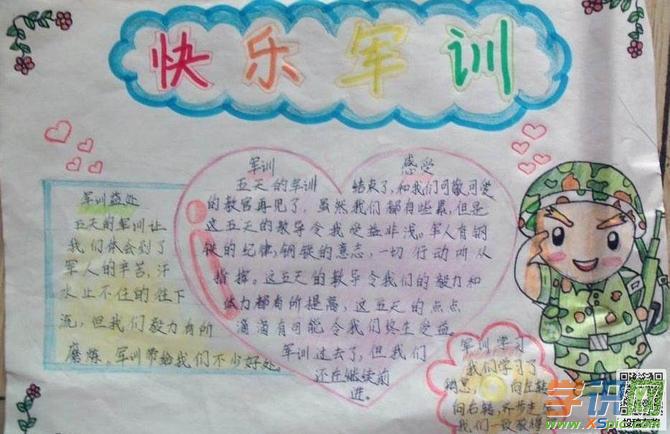 快乐军训
军训益处
五天的军训让
我们体会到了
军人的辛苦，汗
水止不住的往下
流，但我们毅力有所
磨炼。军训带给我们不少好处。
军训 感受
五天的军训 结束了，和我们可敬可爱
的教官再见了，虽然我们都有些累，但是
这五天的教导令我受益非浅。军人有钢
铁的纪律，钢铁的意志，一切行动听从
指挥。这五天的教导令我们的毅力和
体力都有所提高，这五天的点点
滴滴有可能令我们终生受益。
军训过去了，但我们
还在继续前
进。
军训学习
我们学习了
稍息， 向左转
向右转，齐步走
我们一致获得
学识网
www.XSpic.com
投稿有奖